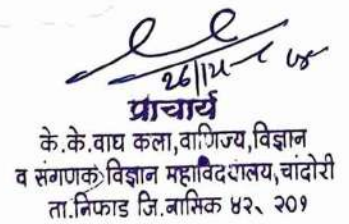 प्राचार्य
के.के.वाघ कला,वाणिज्य,विज्ञान
व संगणक विज्ञान महाविद्यालय,चांदोरी
ता.निफाड जि.नासिक ४२२ २०१